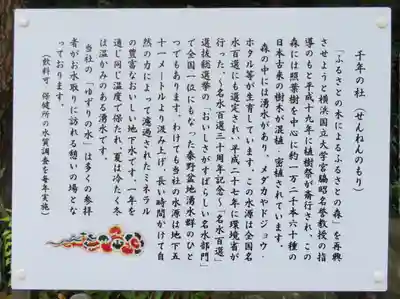 千年の杜（せんねんのもり）
「ふるさとの木によるふるさとの森」を再興
させようと横浜国立大学宮脇昭名誉教授の指
導のもと平成十九年に植樹祭が斎行され、この
森には照葉樹を中心に約一万二千本六十種の
日本古来の樹木が混植・密植されています。
森の中には湧水があり、メダカやドジョウ・
ホタル等が生育しています。この水源は全国名
水百選にも選定され、平成二十七年に環境省が
行った、～名水百選三十周年記念～「名水百選」
選抜総選挙の「おいしさがすばらしい名水部門」
で全国一位にもなった秦野盆地湧水群のひと
つでもあります。わけても当社の水源は地下五
十一メートルより汲み上げ、長い時間かけて自
然の力によって濾過されたミネラル
の豊富なおいしい地下水です。一年を
通じ同じ温度で保たれ、夏は冷たく冬
は温かみのある湧水です。
当社の「ゆずりの水」は多くの参拝
者がお水取りに訪れる憩いの場とな
っております。
（飲料可 保健所の水質調査を毎年実施）